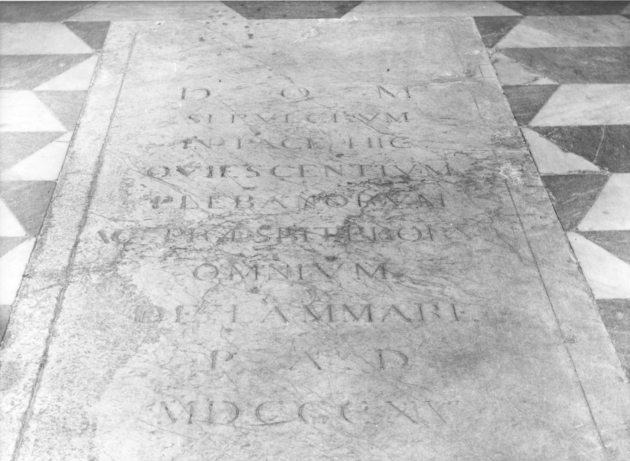 D O M
SEPVLCRVM
IN PACE HIC
QVIESCENTIVM
PLEBANORVM
AC PRESBITERORV
OMNIVM
DE LAMMARI
P A D
MDCCCXV